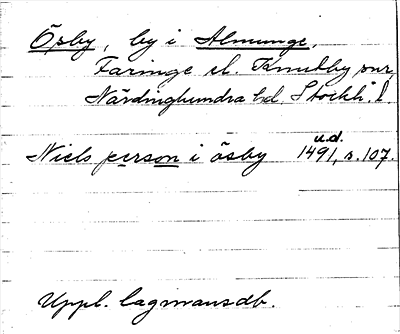 Ösby, by i Almunge,
Faringe el. Knutby snr,
Närdinghundra hd, Stockh. l.
Niels person i ösby 1491, s. 107.
u.d.
Uppl. lagmansdb.